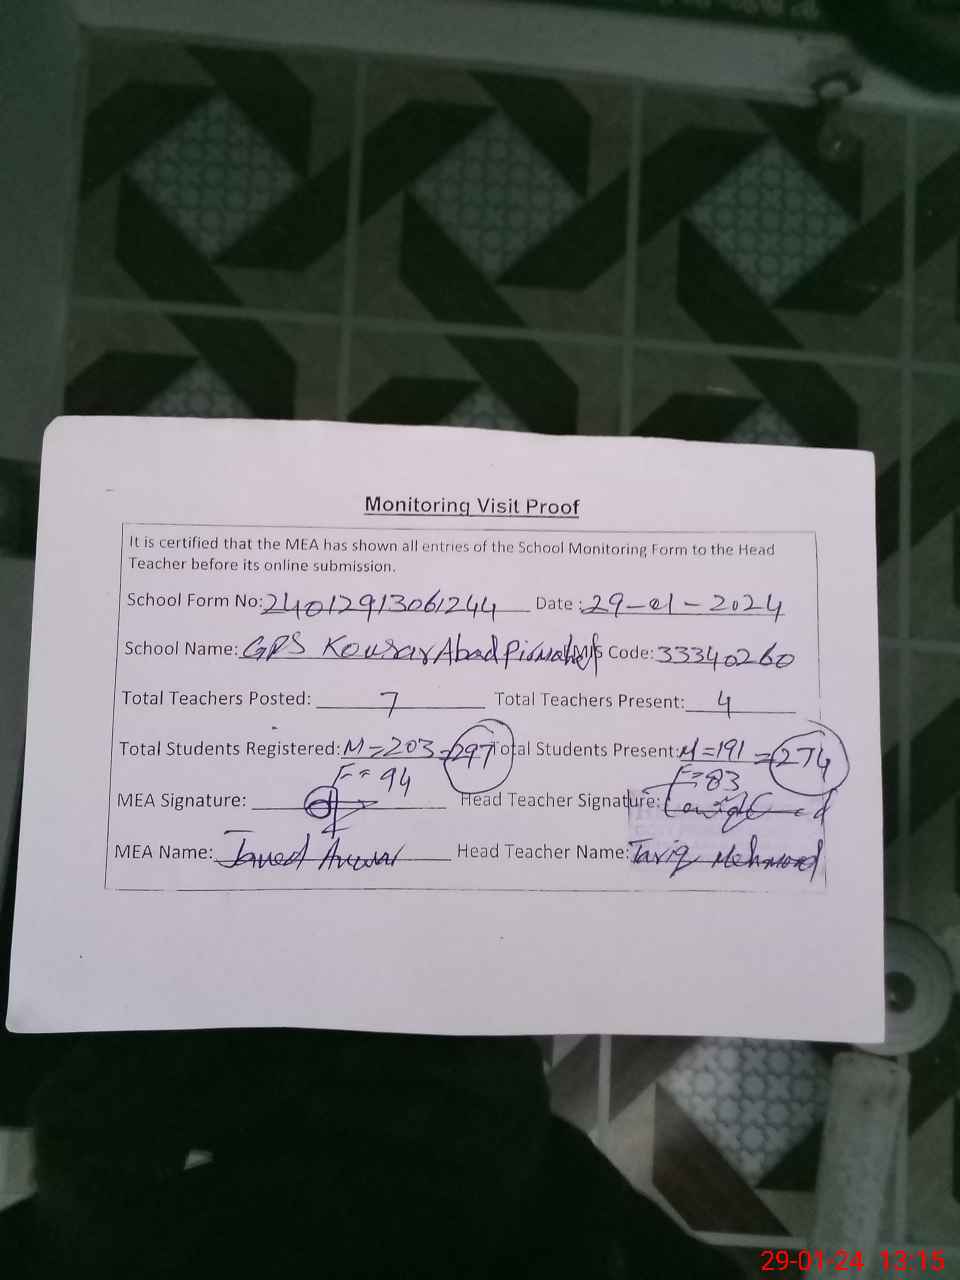 Monitoring Visit Proof
It is certified that the MEA has shown all entries of the School Monitoring Form to the Head
Teacher before its online submission.
School Form No: 24012913061244 Date : 29-01-2024
School Name: GPS Kousar Abad Pirmahal Code: 33340260
Total Teachers Posted: 7 Total Teachers Present: 4
Total Students Registered: M=203 =297 Total Students Present: M=191 =274
F=94 F=83
MEA Signature: Head Teacher Signature:
MEA Name: Javed Anwar Head Teacher Name: Tariq Mehmood
29-01-24 13:15